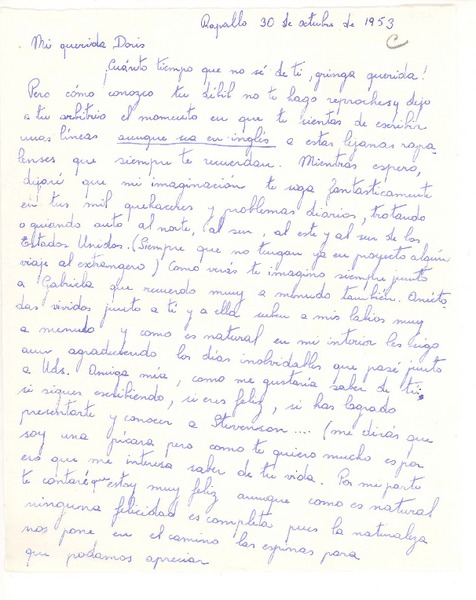 Rapallo 30 de octubre de 1953
C
Mi querida Doris
¡Cuánto tiempo que no sé de ti, gringa querida!
Pero cómo conozco tu débil no te hago reproches y dejo
a tu arbitrio el momento en que te sientas de escribir
unas líneas aunque sea en inglés a estas lejanas rapa-
lenses que siempre te recuerdan. Mientras espero,
dejaré que mi imaginación te siga fantasticamente
en tus mil quehaceres y problemas diarios, trotando
o guiando auto al norte, al sur, al este y al sur de los
Estados Unidos. (Siempre que no tengan ya en proyecto algún
viaje al extrangero) Como verás te imagino siempre junto
a Gabriela que recuerdo muy a menudo también. Anécto-
das vividas junto a ti y a ella suben a mis labios muy
a menudo y como es natural en mi interior les sigo
aun agradeciendo los días inolvidables que pasé junto
a Uds. Amiga mia, como me gustaria saber de tí:
si sigues escribiendo, si eres feliz, si has logrado
presentarte y conocer a Stevenson .... (me dirás que
soy una pícara pero como te quiero mucho es por
eso que me interesa saber de tu vida. Por mi parte
te contaré que estoy muy feliz aunque como es natural
ninguna felicidad es completa pues la naturaleza
nos pone en el camino las espinas para
que podamos apreciar